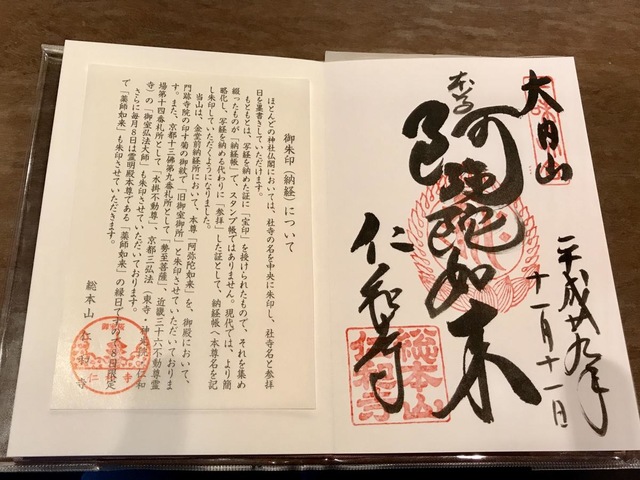 大内山
平成廿九年
十一月十一日
本尊
阿弥陀如来
仁和寺
総本山
仁和寺
御朱印（納経）について
ほとんどの神社仏閣においては、社寺の名を中央に朱印し、社寺名と参拝
日を墨書きしていただけます。
もともとは、写経を納めた証に「宝印」を授けられたもので、それを集め
綴ったものが「納経帳」で、スタンプ帳ではありません。現代では、より簡
略化し、写経を納める代わりに「参拝」した証として、納経帳へ本尊名を記
し朱印していただくようになりました。
当山は、金堂前納経所において、本尊「阿弥陀如来」を、御殿において、
門跡寺院の印十菊の御紋で「旧御室御所」と朱印させていただいておりま
す。また、京都十三佛第九番札所として「勢至菩薩」、近畿三十六不動尊霊
場第十四番札所として「水掛不動尊」、京都三弘法（東寺・神光院・仁和
寺）の「御室弘法大師」も朱印させていただいております。
さらに毎月8日は霊明殿本尊である「薬師如来」の縁日ですので8日限定
で「薬師如来」も朱印させていただきます。
総本山 仁和寺